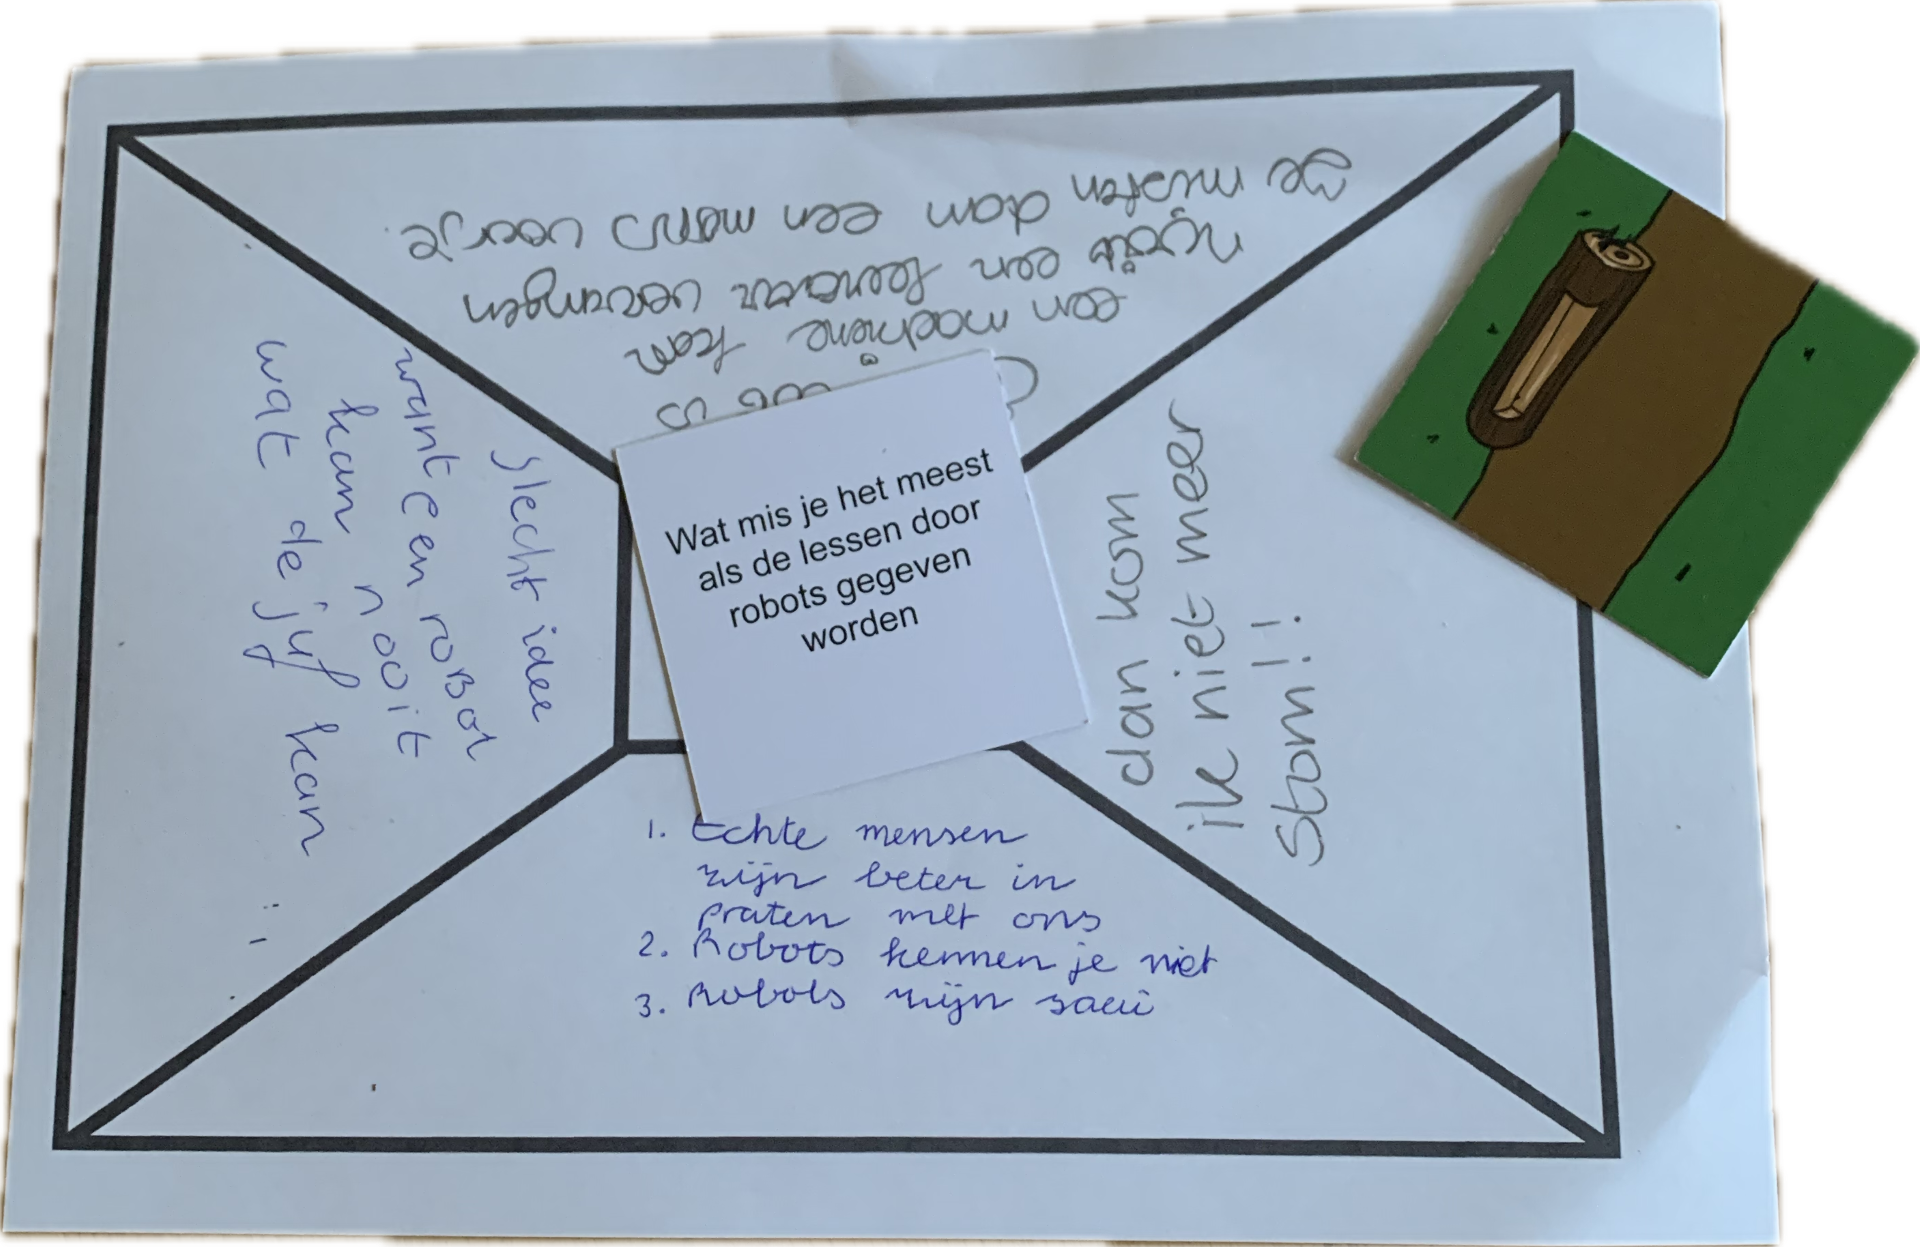 Wat mis je het meest
als de lessen door
robots gegeven
worden
is
een machiene kan
nooit een leeraar vervangen
misten dan een mens voor je.
slecht idee
want een robot
kan nooit
wat de juf kan
dan kom
ik niet meer
Stom!!
1. Echte mensen
zijn beter in
praten met ons
2. Robots kennen je niet
3. Robots zijn saai